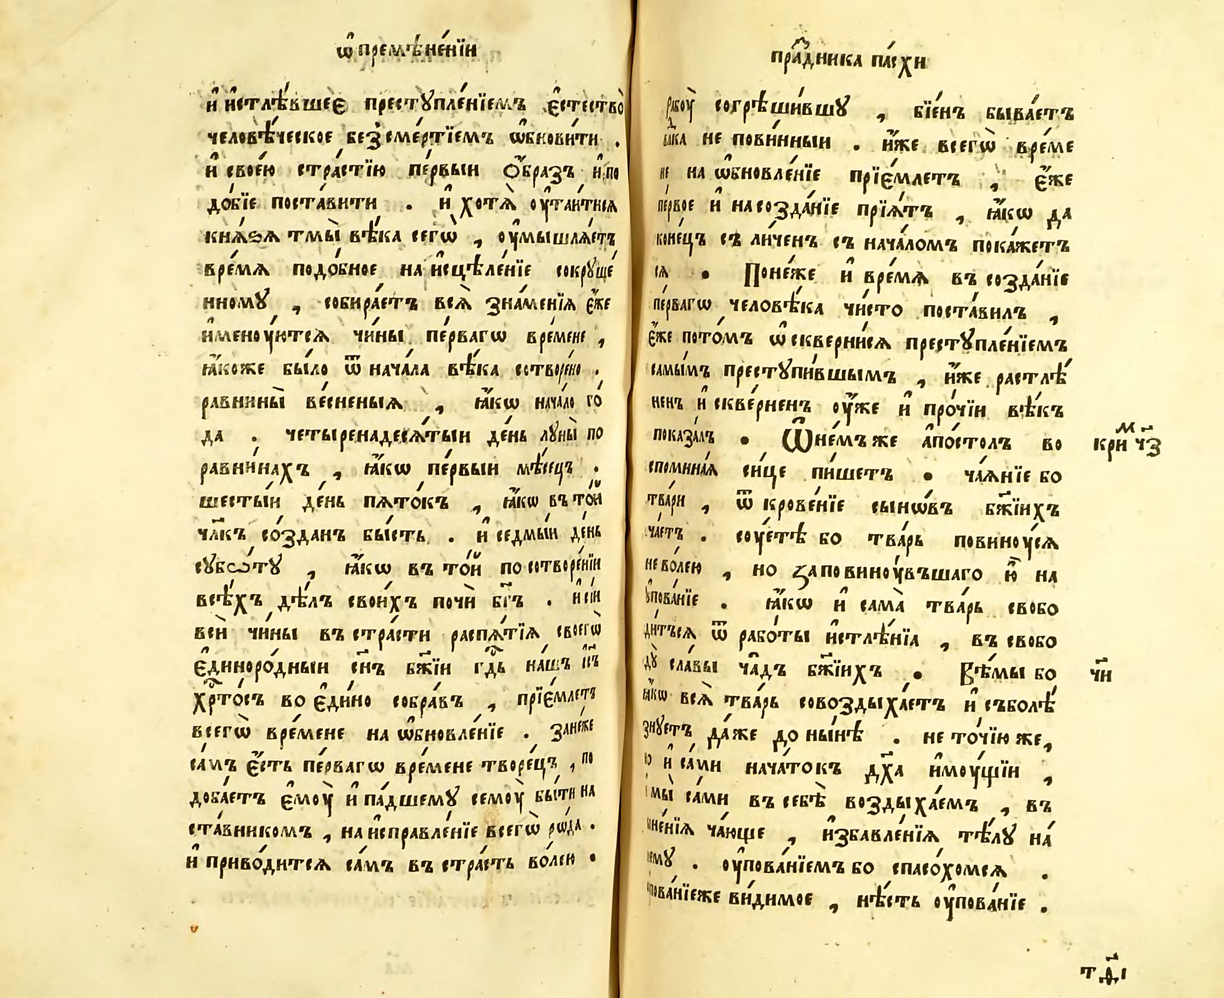 ѡ҆ премѣне́нїи
и҆ и҆стлѣ́вшеє престꙋпле́нїемъ є҆стество̀
человѣ́ческое безсме́ртїемъ ѡ҆бнови́ти .
и҆ свое́ю стра́стїю пе́рвыи ѻ҆́бразъ и҆ по
до́бїе поста́вити . и҆ хотѧ̀ ᲂу҆таи́тисѧ
кнѧ́ѕѧ тмы̀ вѣ́ка сегѡ̀ , ᲂу҆мышлѧ́етъ
вре́мѧ подо́бное на и҆сцѣле́нїе сокрꙋше́
нномꙋ , собира́етъ всѧ̀ зна́менїѧ є҆́же
и҆менꙋ́ютсѧ чи́ны пе́рвагѡ вре́мене ,
ꙗ҆́коже бы́ло ѿ нача́ла вѣ́ка сотворено .
равни́ны ве́сненыѧ , ꙗ҆́кѡ нача́ло го́
да . четыренадесѧ́тыи де́нь лꙋны̀ по
равни́нахъ , ꙗ҆́кѡ пе́рвыи мѣ́сецъ .
шесты́и де́нь пѧто́къ , ꙗ҆́кѡ въ то́й
чл҃къ со́зданъ бы́сть . и҆ седмы́и де́нь
сꙋбѡ́тꙋ , ꙗ҆́кѡ въ то́й по сотворе́нїи
всѣ́хъ дѣ́лъ свои́хъ почѝ бг҃ъ . и҆ сїи
всѝ чи́ны въ стра́сти распѧ́тїѧ своегѡ̀
є҆диноро́дныи сн҃ъ бж҃їи гд҃ь на́шъ і҆с҃ъ
хрⷭ҇то́съ во є҆ди́но собра́въ , прїе́млетъ
всегѡ̀ вре́мене на ѡ҆бновле́нїе . зане́же
са́мъ є҆́сть пе́рвагѡ вре́мене творе́цъ , по
доба́етъ є҆мꙋ̀ и҆ па́дшемꙋ семꙋ̀ бы́ти на
ста́вникомъ , на и҆справле́нїе всегѡ̀ рѡ́да .
и҆ приво́дитсѧ са́мъ въ стра́сть во́лею .
пра́здника па́схи
рабꙋ̀ согрѣши́вшꙋ , бїе́нъ быва́етъ
влⷣка не пови́нныи . и҆́же всегѡ̀ вре́ме
не на ѡ҆бновле́нїе прїе́млетъ , є҆́же
пе́рвое и҆ на созда́нїе прїѧ́тъ , ꙗ҆́кѡ да
коне́цъ съ ли́ченъ съ нача́ломъ пока́жетъ
сѧ . Поне́же и҆ вре́мѧ въ созда́нїе
пе́рвагѡ человѣ́ка чи́сто поста́вилъ ,
є҆́же пото́мъ ѡ҆скверни́сѧ престꙋпле́нїемъ
самы́мъ престꙋпи́вшымъ , и҆́же растлѣ́
ненъ и҆ скве́рненъ ᲂу҆́же и҆ про́чїи вѣ́къ
показа́лъ . Ѡ҆ не́мъ же а҆по́столъ во
спомина́ѧ си́це пи́шетъ . ча́ѧнїе бо
тва́ри , ѿкрове́нїе сынѡ́въ бж҃їихъ
ча́етъ . сꙋетѣ́ бо тва́рь повинꙋ́сѧ
не во́лею , но за повинꙋ́въшаго ю҆̀ на
ᲂу҆пова́нїе . ꙗ҆́кѡ и҆ сама̀ тва́рь свобо
ди́тъсѧ ѿ рабо́ты и҆стлѣ́нїѧ , въ свобо
дꙋ̀ сла́вы ча̑дъ бж҃їихъ . Вѣ́мы бо
ꙗ҆́кѡ всѧ̀ тва́рь совоздыха́етъ и҆ съболѣ́
знꙋетъ да́же до ны́нѣ . не то́чїю же ,
но и҆ са́ми нача́токъ дх҃а и҆мꙋ́щїи ,
и҆ мы̀ са́ми въ себѣ̀ воздыха́емъ , въ
сыне́нїѧ ча́юще , и҆збавле́нїѧ тѣ́лꙋ на́
шемꙋ . ᲂу҆пова́нїемъ бо спасо́хомсѧ .
ᲂу҆пова́нїеже ви́димое , нѣ́сть ᲂу҆пова́нїе .
кри м ч҃з
ч҃и